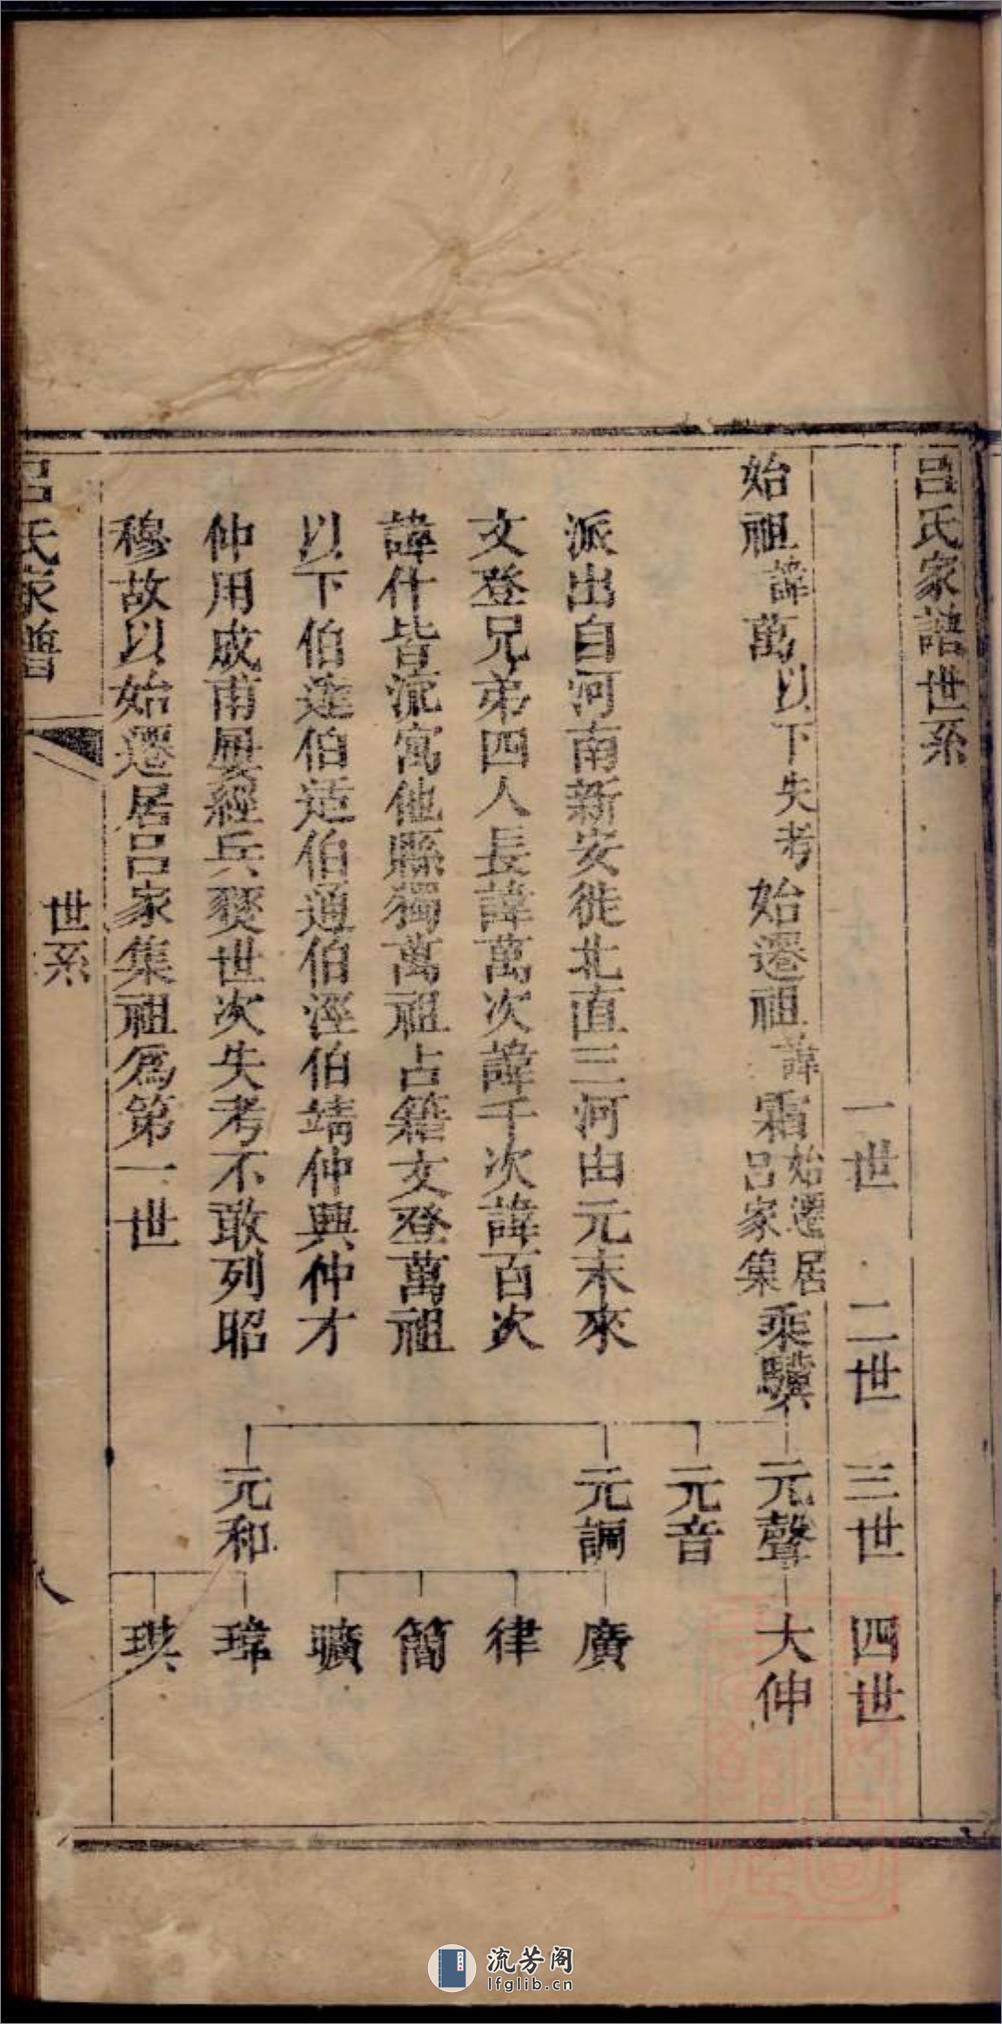 吕氏家譜世系
一世 二世 三世 四世
始祖諱萬以下失考 始遷祖諱霜始遷居吕家集 乘驥 元聲 大伸
元音
派出自河南新安徙北直三河由元末來 元調 廣
文登兄弟四人長諱萬次諱千次諱百次 律
諱什皆流寓他縣獨萬祖占籍文登萬祖 簡
以下伯達伯适伯通伯涇伯靖仲興仲才 曠
仲用成甫屢經兵燹世次失考不敢列昭 元和 瑋
穆故以始遷居吕家集祖爲第一世 琪
吕氏家譜 世系 八
流芳阁
lfglib.cn